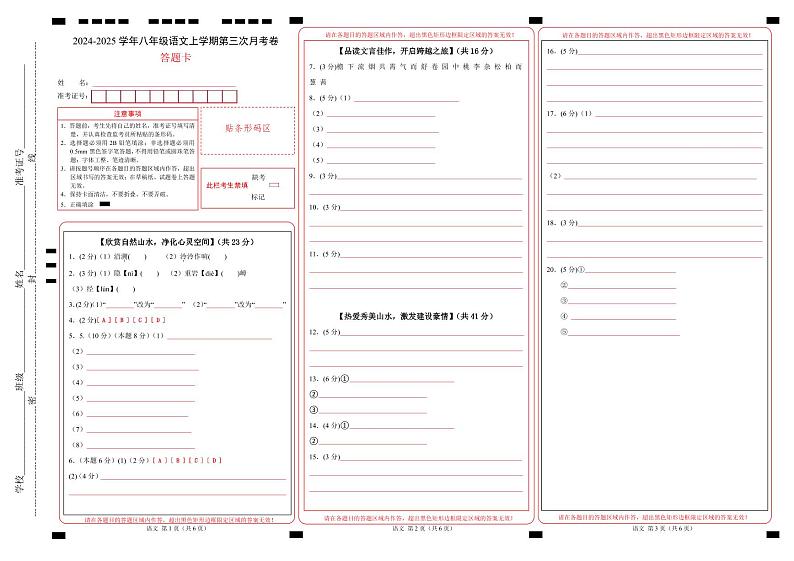 学校
班级
姓名
准考证号
密
封
线
2024-2025 学年八年级语文上学期第三次月考卷
答题卡
姓 名：
准考证号：
注意事项
1．答题前，考生先将自己的姓名，准考证号填写清
楚，并认真检查监考员所粘贴的条形码。
2．选择题必须用 2B 铅笔填涂；非选择题必须用
0.5mm 黑色签字笔答题，不得用铅笔或圆珠笔答
题；字体工整、笔迹清晰。
3．请按题号顺序在各题目的答题区域内作答，超出
区域书写的答案无效；在草稿纸、试题卷上答题
无效。
4．保持卡面清洁，不要折叠、不要弄破。
5．正确填涂
贴条形码区
此栏考生禁填
缺考
标记
【欣赏自然山水，净化心灵空间】(共 23 分)
1．(2 分)（1）沿溯( ) （2）泠泠作响( )
2．(3 分)（1）隐【nì】( ) （2）重岩【dié】( )嶂
（3）经【lún】( )
3．(2 分)（1）“________”改为“________” （2）“________”改为“________”
4．(2 分)[ A ] [ B ] [ C ] [ D ]
5．5.（10 分）(本题 8 分)（1）
（2）
（3）
（4）
（5）
（6）
（7）
（8）
6．（本题 6 分）(1)（2 分）[ A ] [ B ] [ C ] [ D ]
(2)（4 分）
请在各题目的答题区域内作答，超出黑色矩形边框限定区域的答案无效！
语文 第 1 页（共 6 页）
请在各题目的答题区域内作答，超出黑色矩形边框限定区域的答案无效！
【品读文言佳作，开启跨越之旅】(共 16 分)
7．(3 分)檐 下 流 烟 共 霭 气 而 舒 卷 园 中 桃 李 杂 松 柏 而
葱 蒨
8．(5 分)（1）
（2）
（3）
（4）
（5）
9．(3 分)
10．(3 分)
11．(5 分)
【热爱秀美山水，激发建设豪情】(共 41 分)
12．(5 分)
13．(6 分)①
②
③
14．(4 分)①
②
15．(3 分)
请在各题目的答题区域内作答，超出黑色矩形边框限定区域的答案无效！
语文 第 2 页（共 6 页）
请在各题目的答题区域内作答，超出黑色矩形边框限定区域的答案无效！
16．(5 分)
17．(6 分)（1）
（2）
18．(3 分)
20．(5 分)①
②
③
④
⑤
请在各题目的答题区域内作答，超出黑色矩形边框限定区域的答案无效！
语文 第 3 页（共 6 页）